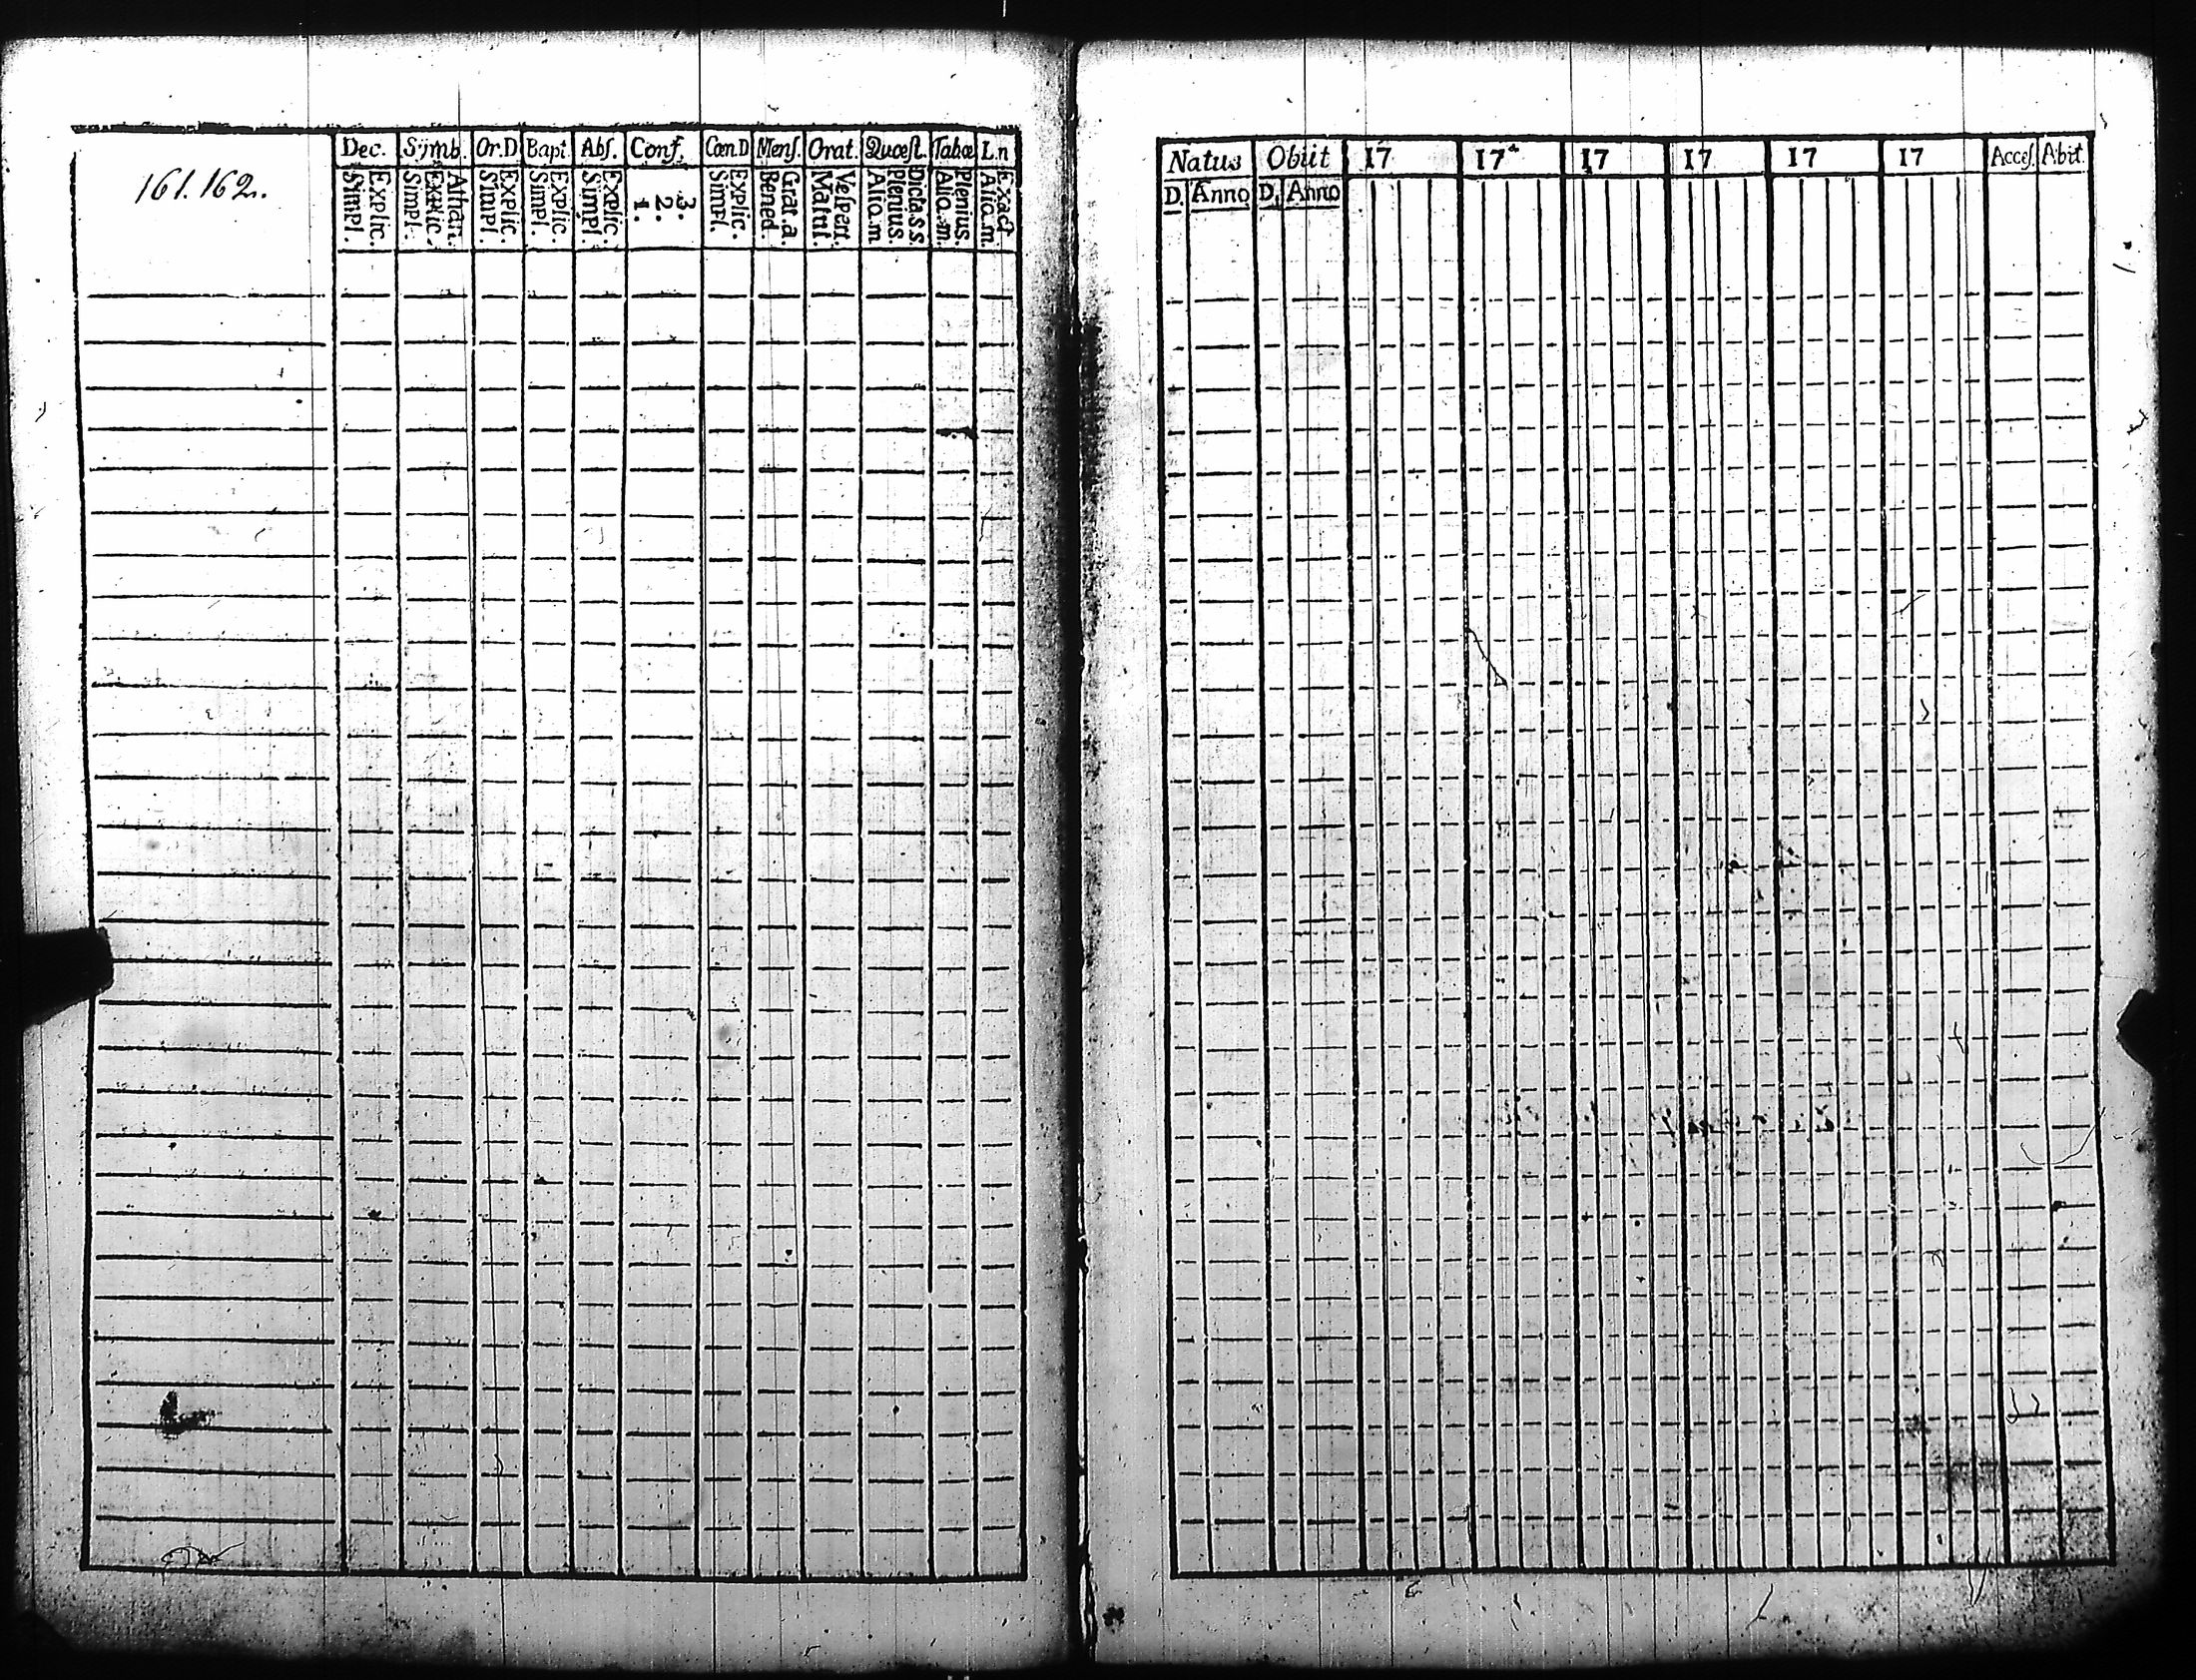 161.162.
Dec. Symb. Or.D Bapt. Abſ. Conf. Cœn.D Menſ. Orat. Quœſt. Tabœ L.n
Explic. Simpl.
Athan. Explic. Simpl.
Explic. Simpl.
Explic. Simpl.
Explic. Simpl.
3. 2. 1.
Explic. Simpl.
Grat.a. Bened.
Veſpert. Matut.
Dicta.s.s. Plenius. Alio.m.
Plenius. Alio.m.
Exact Alio.m.
Natus Obiit 17 17 17 17 17 17 Acceſ. Abit.
D. Anno D. Anno